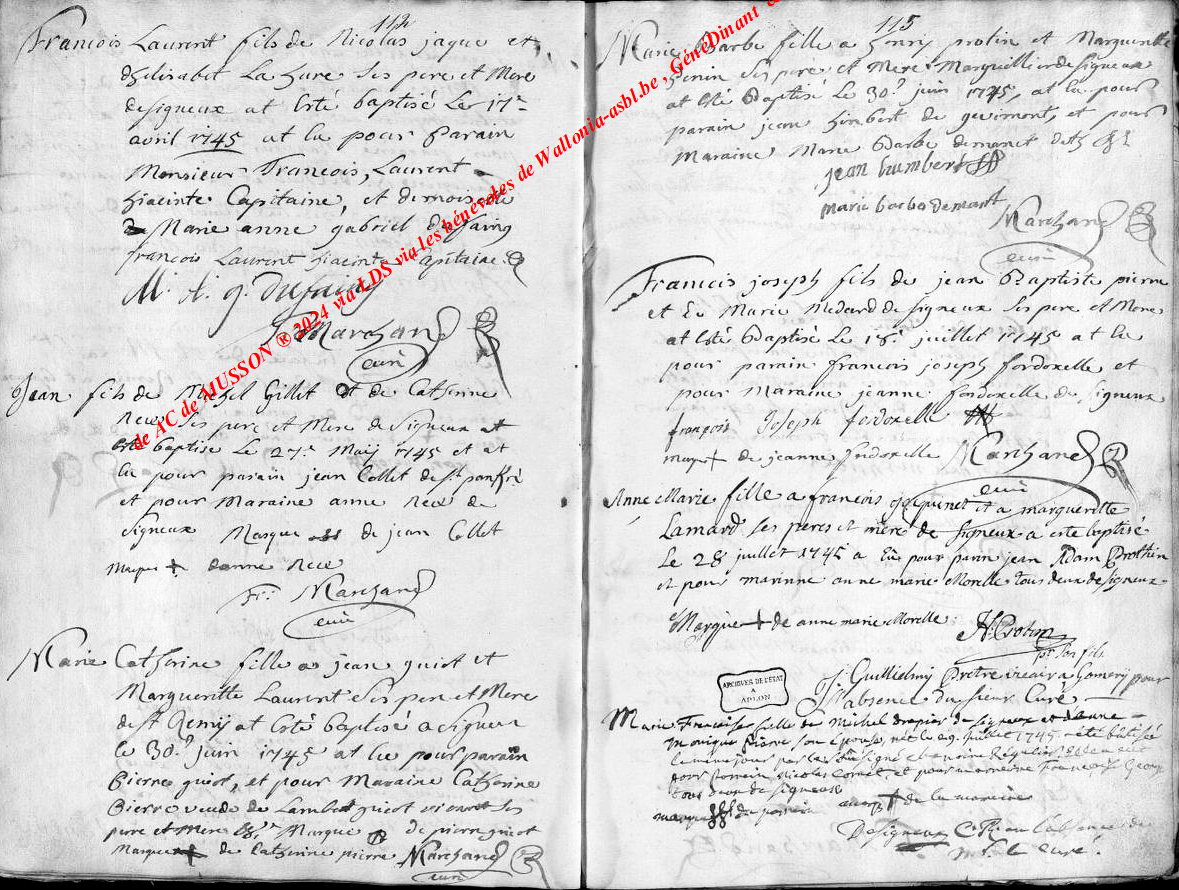 112
Francois Laurent fils de Nicolas jaque et
d'helisabet La hure ses pere et Mere
de signeux at Esté baptisé Le 17e
avril 1745 at lu pour parain
Monsieur Francois, Laurent
hiacinte Capitaine, et demoiselle
Marie anne gabriel
francois Laurent hiacinte Capitaine
M. A. g.
Marchand
curé
Jean fils de Michel Gillet et de Catherine
ses pere et Mere de Signeux at
esté baptisé Le 27e Maij 1745 et at
lu pour parain jean Collet de
et pour Maraine anne de
Signeux Marque de jean Collet
Marque + danne
Fr. Marchand
curé
Marie Catherine fille a jean guiot et
Margueritte Laurent ses pere et Mere
de St Remij at Esté baptisé a Signeux
le 30e juin 1745 at lu pour parain
Pierre guiot, et pour Maraine Catherine
Pierre veuve de Lambert guiot vivant ses
pere et Mere Marque de pierre guiot
Marque + de Catherine pierre Marchand
curé
115
Marie Barbe fille a henrij protin et Margueritte
henin ses pere et Mere Marguillier de signeux
at Esté Baptisé Le 30e juin 1745, at lu pour
parain jean himbert de gevimont, et pour
Maraine Marie Barbe demanet
jean humbert
marie barbe demant
Marchand
curé
Francois joseph fils de jean Baptiste pierre
et de Marie Medard de signeux ses pere et Mere
at Esté Baptisé Le 18e juillet 1745 at lu
pour parain francois joseph fordoxelle et
pour Maraine jeanne fordoxelle de signeux
françois Joseph fordoxelle
marque + de jeanne fordoxelle Marchand
curé
Anne Marie fille a francois et a margueritte
Lamard ses peres et mere de Signeux a este baptisé
Le 28 juillet 1745 a Eü pour parin jean Adam Prothin
et pour marinne anne marie Morelle tous deux de signeux
Marque + de anne marie Morelle
H. Protin
pr son fils
J. Guillielmij Pretre vicair a Gomerij pour
l'absence du sieur Curé
ARCHIVES DE L'ETAT
A
ARLON
Marie Francoise fille de Michel drapier de Signeux et d'anne
monique pierre son Epouse, née le 29. juillet 1745 a été batisée
le meme jour par le sousigné
pour parrain Nicolas Cornet et pour marreine Francoise George
tous deux de signeux
marque du parain marq + de la mareine
Designeux en l'absence de
mr. le curé.
de AC de MUSSON ® 2024 via LDS via les bénévoles de Wallonia-asbl.be , GénéDinant